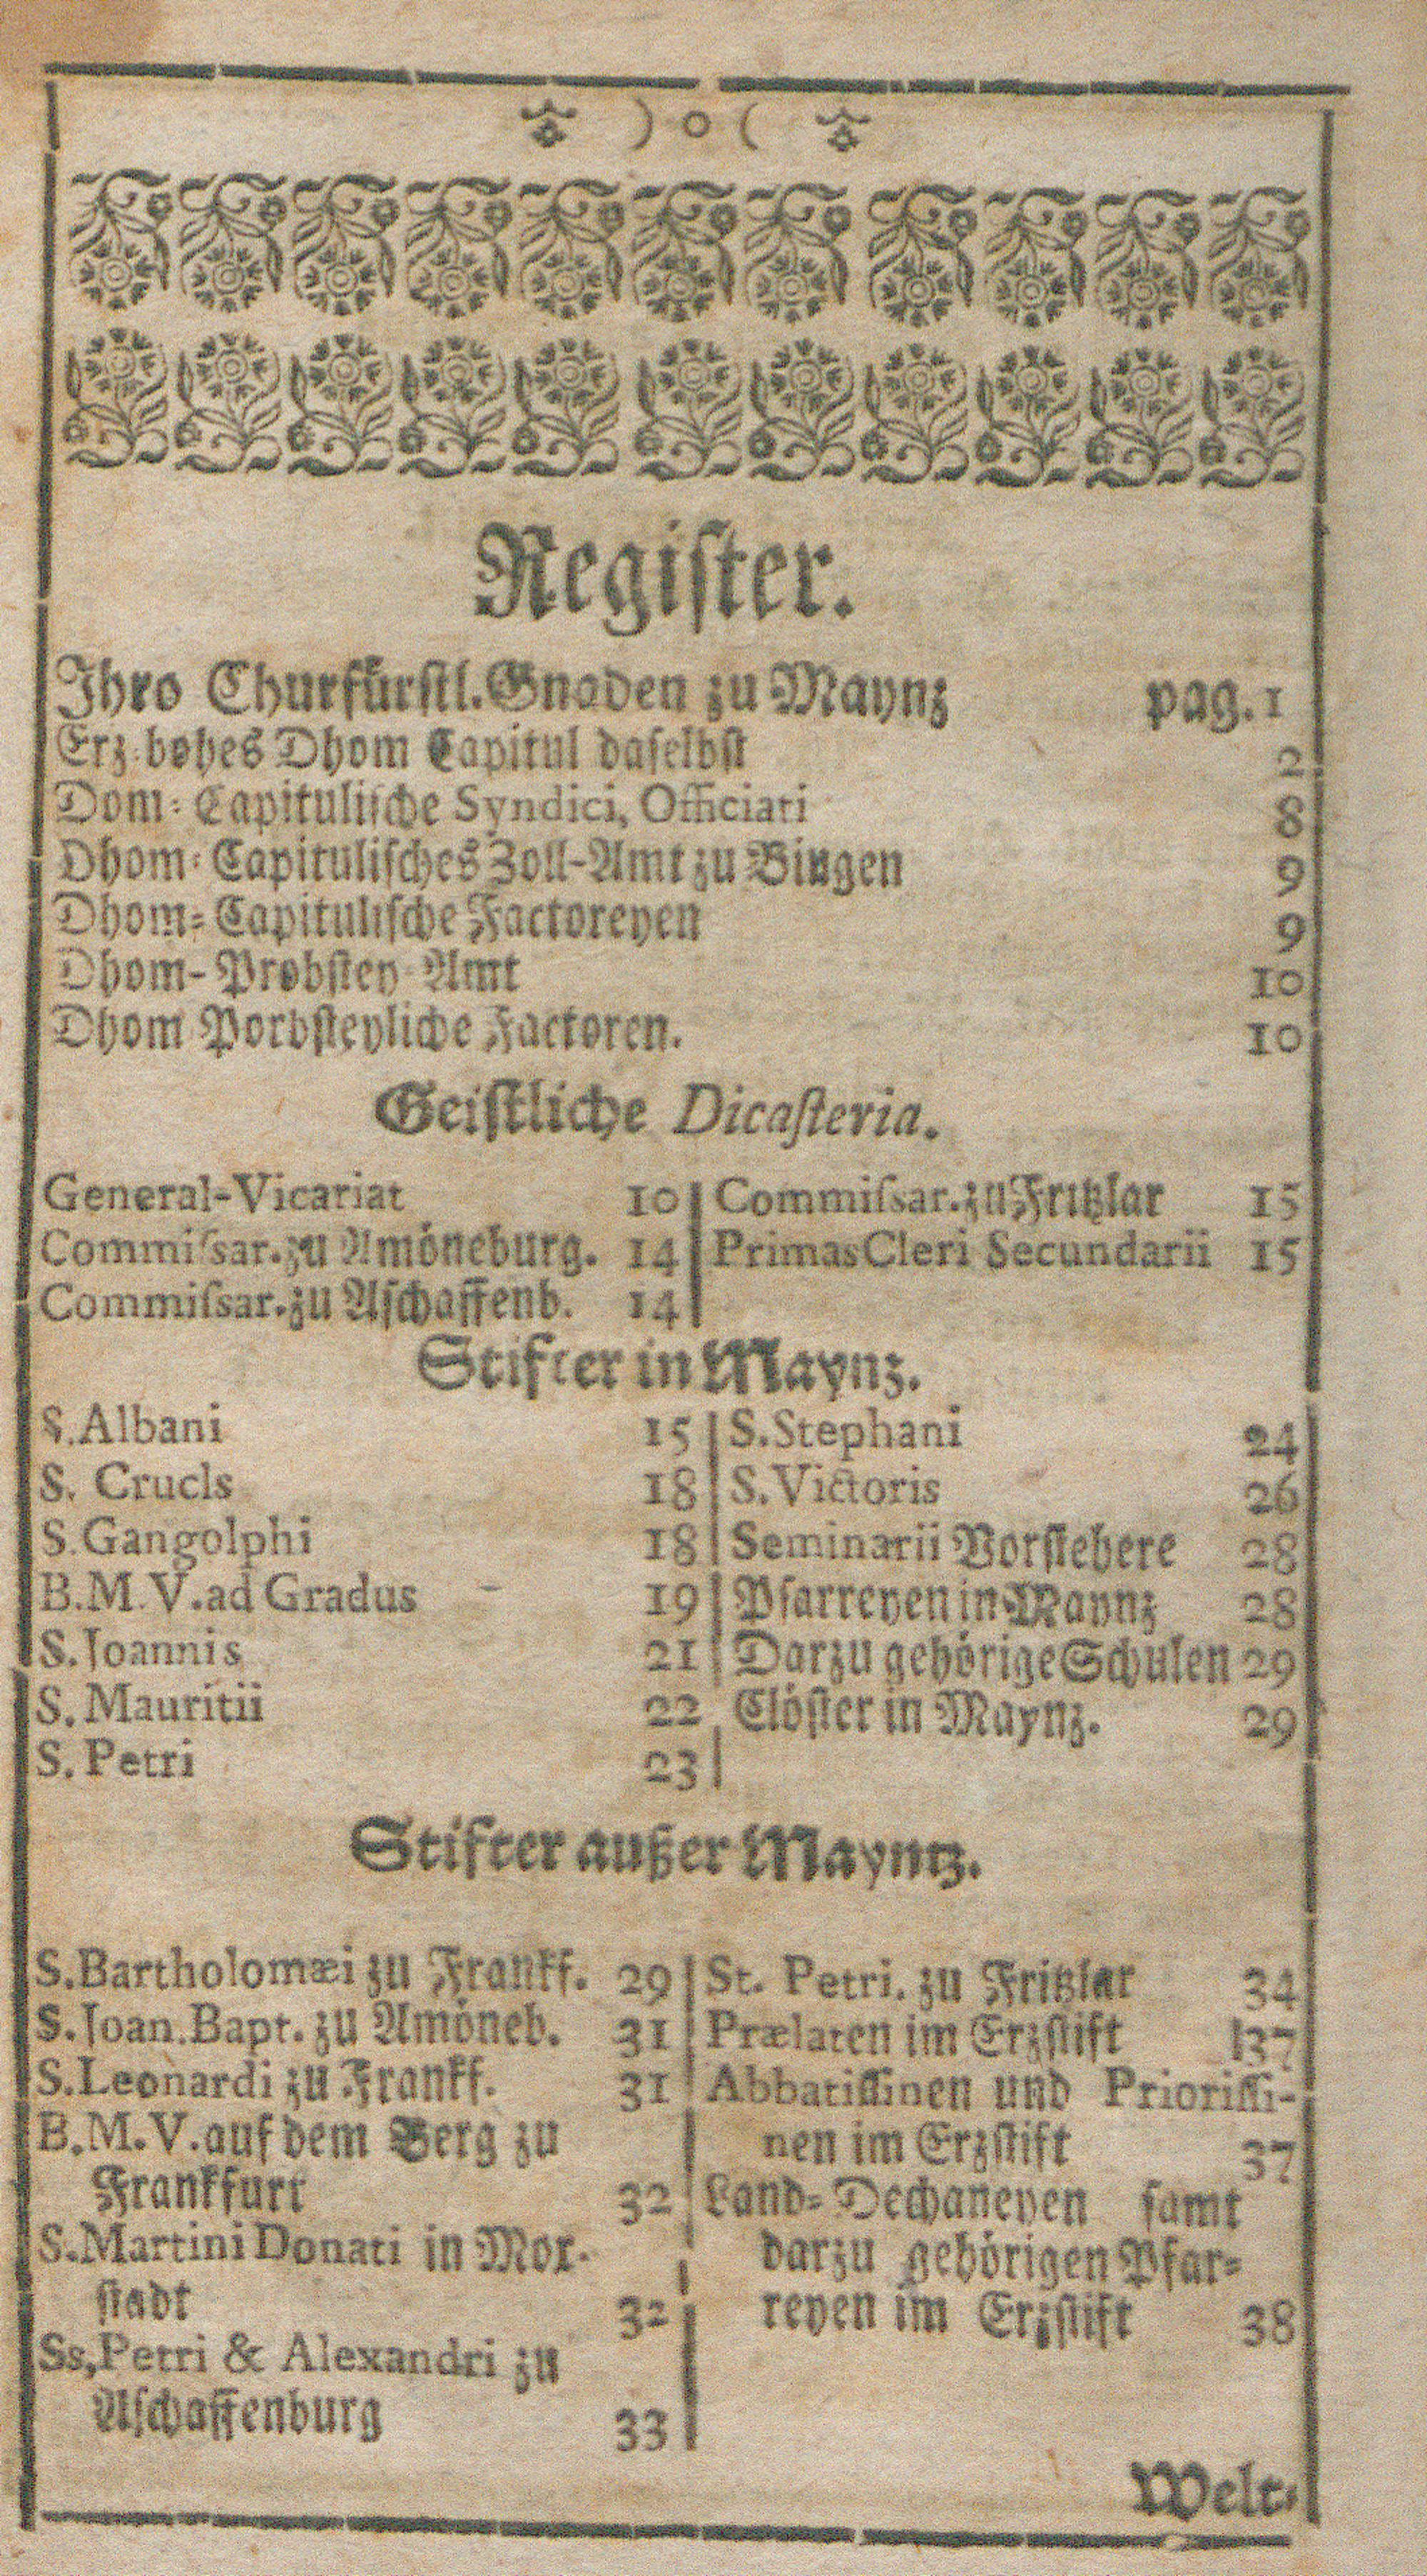 ) o (
Register.
Ihro Churfürstl. Gnaden zu Maynz pag. 1
Erz-hohes Dhom Capitul daselbst 2
Dom-Capitulische Syndici, Officiati 8
Dhom-Capitulisches Zoll-Amt zu Bingen 9
Dhom-Capitulische Factoreyen 9
Dhom-Probstey Amt 10
Dhom Porbsteyliche Factoren. 10
Geistliche Dicasteria.
General-Vicariat 10
Commissar. zu Amöneburg. 14
Commissar. zu Aschaffenb. 14
Commissar. zu Fritzlar 15
Primas Cleri Secundarii 15
Stifter in Maynz.
S. Albani 15
S. Crucls 18
S. Gangolphi 18
B. M. V. ad Gradus - 19
S. Joannis 21
S. Mauritii 22
S. Petri 23
S. Stephani 24
S. Victoris 26
Seminarii Vorstehere 28
Pfarreyen in Maynz 28
Darzu gehörige Schulen 29
Clöster in Maynz. 29
Stifter außer Mayntz.
S. Bartholomæi zu Frankf. 29
S. Joan. Bapt. zu Amöneb. 31
S. Leonardi zu Frankf. 31
B. M. V. auf dem Berg zu
Frankfurt 32
S. Martini Donati in Mor-
stadt 32
Ss, Petri & Alexandri zu
Aschaffenburg 33
St. Petri. zu Fritzlar 34
Prælaten im Erzstift 137
Abbatissinen und Priorissi-
nen im Erzstift 37
Land-Dechaneyen samt
darzu gehörigen Pfar-
reyen im Erzstift 38
Welt-